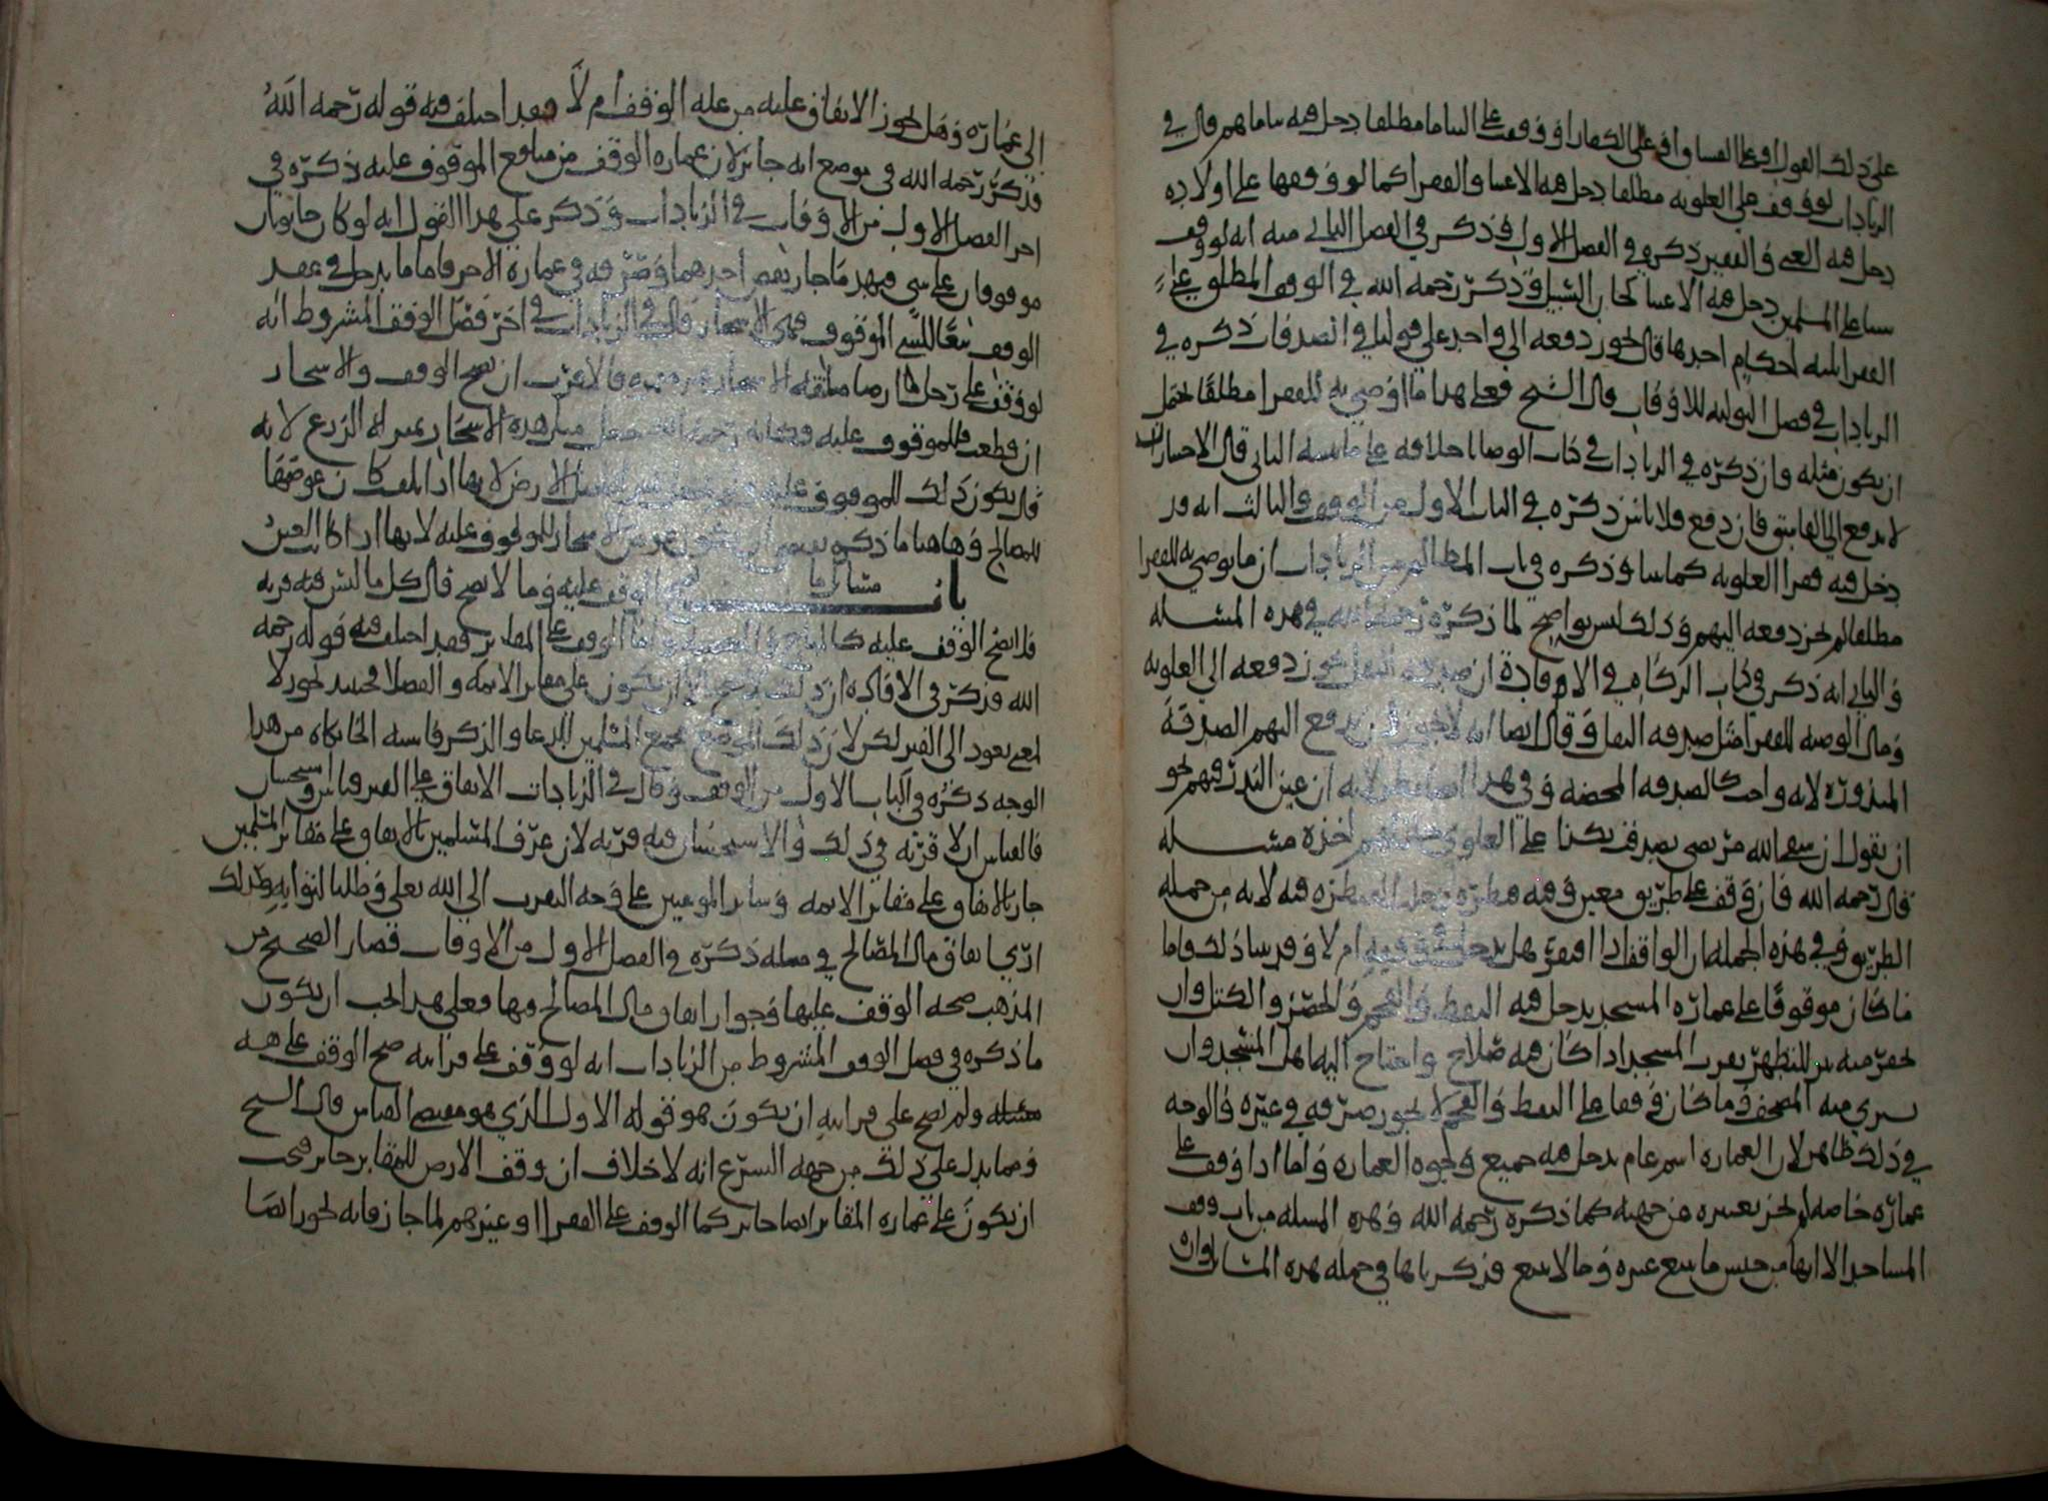 على ذلك القول او على الفساق او على الكفار او وقف على اليتامى مطلقا دخل فيه يتاماهم قال في
الزيادات لو وقف على العلويه مطلقا دخل فيه الاغنيا والفقرا كما لو وقفها على اولاده
دخل فيه الغني والفقير ذكره في الفصل الاول وذكر في الفصل الثاني منه انه لو وقف
على المسلمين دخل فيه الاغنيا كخان السبيل وذكر رحمه الله في الوقف المطلق على
الفقرا ثلثه احكام احدها قال يجوز دفعه الى واحد على قولنا في الصدقات ذكره في
الزيادات في فصل التوليه للاوقاف قال الشيخ فعلى هذا ما اوصي به للفقرا مطلقا يحتمل
ان يكون مثله وان ذكره في الزيادات في كتاب الوصايا خلافه على ما نبينه الثاني قال الاحسن ان
لا يدفع الى الفاسق فان دفع فلا باس ذكره في الباب الاول من الوقف والثالث انه قد
دخل فيه فقرا العلويه كما بينا وذكره في باب المظالم من الزيادات ان ما يوصي به للفقرا
مطلقا لم يجز دفعه اليهم وذلك ليس بواضح لما ذكره رحمه الله في هذه المسئله
والثاني انه ذكر في كتاب الزكاه في الافاده ان صدقه النفل يجوز دفعه الى العلويه
وقال الوصيه للفقرا مثل صدقه النفل وقال ايضا انه لا يجوز ان يدفع اليهم الصدقه
المنذوره لانه واجب كالصدقه المحضه وفي هذا ايضا نظر لانه ان عين النذر فيهم نحو
ان يقول ان شفى الله مريضي تصدقت بكذا على العلوي جاز لهم اخذه مسئله
قال رحمه الله فان وقف على طريق معين وفيه قنطره دخل القنطره فيه لانه من جمله
الطريق وفي هذه الجمله ان الواقف اذا افتقر هل يدخل في وقفه ام لا وقد بينا ذلك واما
ما كان موقوفا على عماره المسجد يدخل فيه النفط والفحم والحصر والكنس وان
يحفر منه بير للتطهر بقرب المسجد اذا كان فيه صلاح واحتاج اليه اهل المسجد وان
يشتري منه المصحف وما كان وقفا على النفط والفحم لا يجوز صرفه في غيره والوجه
في ذلك ظاهر لان العماره اسم عام يدخل فيه جميع وجوه العماره واما اذا وقف على
عماره خاصه لم يجز تغييره عن جهته كما ذكره رحمه الله وهذه المسله من باب وقف
المساجد الا انها من جنس ما يتبع غيره وما لا يتبع فذكرناها في جمله هذه المسائل وان
الى عمارته وهل يجوز الانفاق عليه من غله الوقف ام لا فقد اختلف فيه قوله رحمه الله
فذكر رحمه الله في موضع انه جائز لان عماره الوقف من منافع الموقوف عليه ذكره في
اخر الفصل الاول من الاوقاف في الزيادات وذكر على هذا القول انه لو كان حانوتان
موقوفان على شي فيهدما جاز نقض احدهما وصرفه في عماره الاخر فاما ما يدخل في عقد
الوقف تبعا للشي الموقوف فهي الاشجار قال في الزيادات في اخر فصل الوقف المشروط انه
لو وقف على رجل ارضا الاشجار فالاقرب ان يصح الوقف والاشجار
ان قطعت فللموقوف عليه وكانه رحمه الله جعل مثل هذه الاشجار بمنزله الزرع لانه
قال يكون ذلك للموقوف عليه الارض لانها اذا تلفت كان عوضها
للمصالح وهاهنا ما ذكره يقتضي ان يكون الاشجار للموقوف عليه لانها اذا كانت العين
باب مسائل ما يصح الوقف عليه وما لا يصح قال كل ما ليس فيه قربه
فلا يصح الوقف عليه واما الوقف على المقابر فقد اختلف فيه قوله رحمه
الله فذكر في الافاده ان ذلك لا يصح الا ان يكون على مقابر الائمه والفضلا فحينئذ يجوز لا
لمعنى يعود الى القبر لكن لان ذلك الموضع يجمع المسلمين للدعا والذكر فاشبه الخانكاه من هذا
الوجه ذكره في الباب الاول من الوقف وقال في الزيادات الانفاق على القبر قياس واستحسان
فالقياس ان لا قربه في ذلك والاستحسان فيه قربه لان عرف المسلمين بالانفاق على مقابر المسلمين
جار بالانفاق على مقابر الائمه وسائر المومنين على وجه التقرب الى الله تعلى وطلبا لثوابه ولذلك
ارى انفاق مال المصالح في مثله ذكره في الفصل الاول من الاوقاف فصار الصحيح من
المذهب صحه الوقف عليها وجواز انفاق مال المصالح فيها فعلى هذا يجب ان يكون
ما ذكره في فصل الوقف المشروط من الزيادات انه لو وقف على قرابته صح الوقف على
ولم يصح على قرابته ان يكون هو قوله الاول الذي هو مقتضى القياس قال الشيخ
ومما يدل على ذلك من جهه الشرع انه لا خلاف ان وقف الارض للمقابر جائز فيجب
ان يكون على عماره المقابر ايضا جائز كما الوقف على الفقرا او غيرهم لما جاز فانه يجوز ايضا